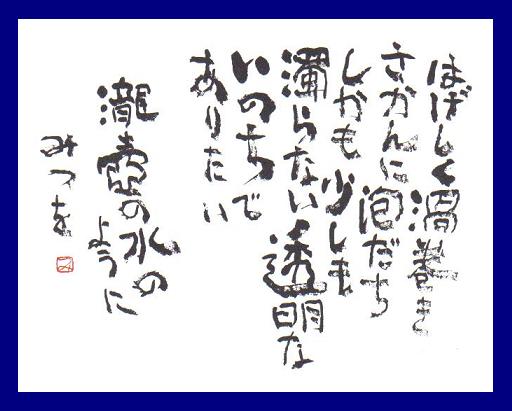 はげしく渦巻き
さかんに泡だち
しかも少しも
濁らない透明な
いのちで
ありたい
瀧壺の水の
ように
みつを